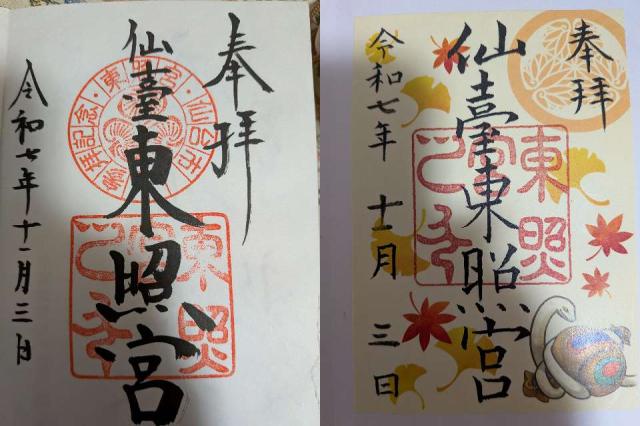 奉拝
仙臺東照宮
令和七年十一月三日
東照宮・仙台市
参拝記念
東照宮
奉拝
仙臺東照宮
令和七年 十一月 三日
東照宮